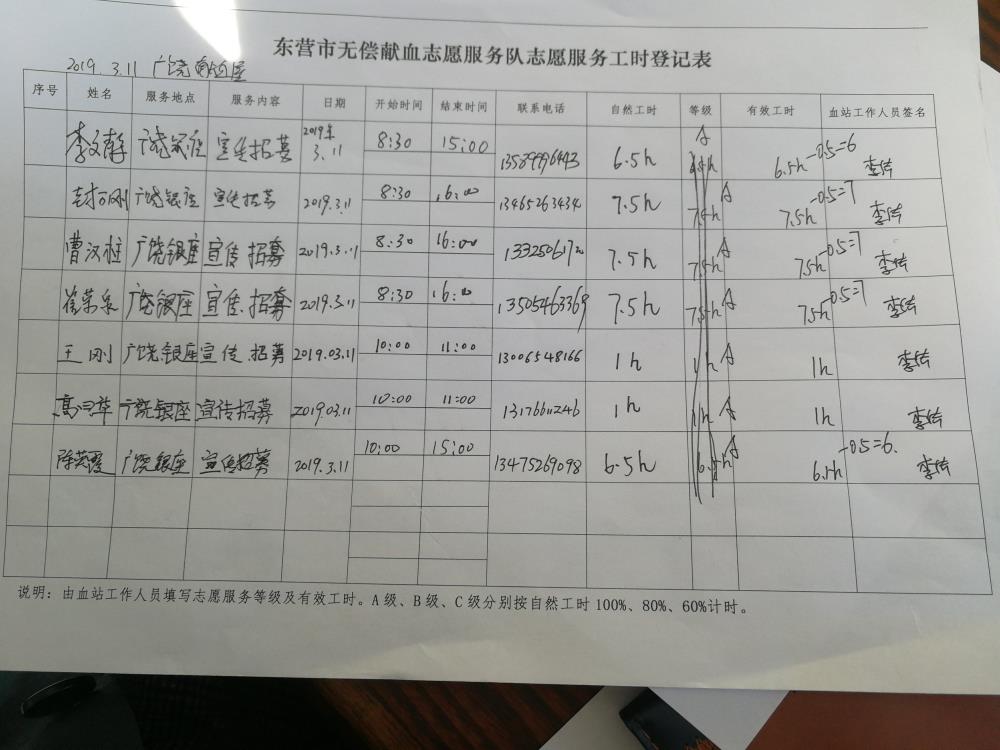 东营市无偿献血志愿服务队志愿服务工时登记表
2019. 3.11 广饶
序号 姓名 服务地点 服务内容 日期 开始时间 结束时间 联系电话 自然工时 等级 有效工时 血站工作人员签名
李文静 广饶银座 宣传招募 2019年3.11 8:30 15:00 13589996443 6.5h A 6.5h-0.5=6
刚 广饶银座 宣传招募 2019.3.11 8:30 16:00 13465263434 7.5h 7.5h A 7.5h-0.5=7
曹汉柱 广饶银座 宣传招募 2019.3.11 8:30 16:00 7.5h 7.5h A 7.5h-0.5=7
崔荣泉 广饶银座 宣传.招募 2019.3.11 8:30 16:00 13505463369 7.5h 7.5h A 7.5h-0.5=7
王刚 广饶银座 宣传.招募 2019.03.11 10:00 11:00 13006548166 1h 1h A 1h
广饶银座 宣传招募 2019.03.11 10:00 11:00 1h 1h A 1h
广饶银座 宣传招募 2019.3.11 10:00 15:00 13475269098 6.5h 6.5h A 6.5h-0.5=6.
说明：由血站工作人员填写志愿服务等级及有效工时。A级、B级、C级分别按自然工时100%、80%、60%计时。